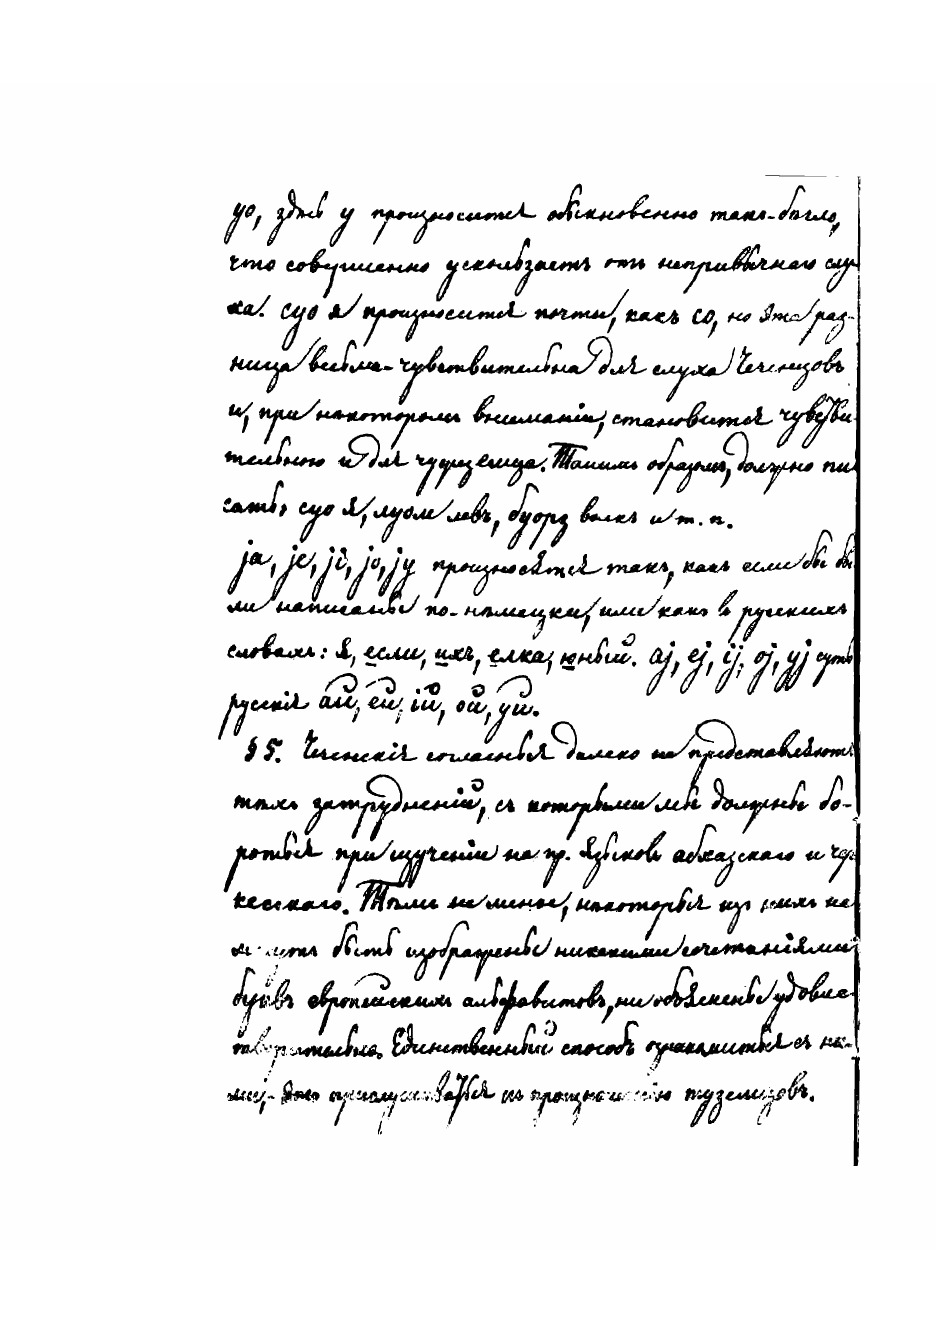 уо, здѣсь у произносится обыкновенно такъ бѣгло,
что совершенно ускользаетъ отъ непривычнаго слу-
ха. суо я произносится почти, какъ со, но эта раз-
ница весьма чувствительна для слуха Чеченцовъ
и, при нѣкоторомъ вниманіи, становится чувстви-
тельною и для чужеземца. Такимъ образомъ, должно пи-
сать: суо я, луом левъ, буорз волкъ и т. п.
ја, је, јі, јо, ју произносятся такъ, какъ если бы бы-
ли написаны по-нѣмецки, или какъ въ русскихъ
словахъ: я, если, ихъ, елка, юный. ај, еј, іј, ој, уј суть
русскія ай, ей, ій, ой, уй.
§ 5. Чеченскія согласныя далеко не представляютъ
тѣхъ затрудненій, съ которыми мы должны бо-
роться при изученіи на пр. языковъ абхазскаго и чер-
кесскаго. Тѣмъ не менѣе, нѣкоторыя изъ нихъ не
могутъ быть изображены никакими сочетаніями
буквъ европейскихъ алфавитовъ, ни объяснены удовле-
творительно. Единственный способъ ознакомиться съ ни-
ми,- это прислушиваться къ произношенію туземцовъ.